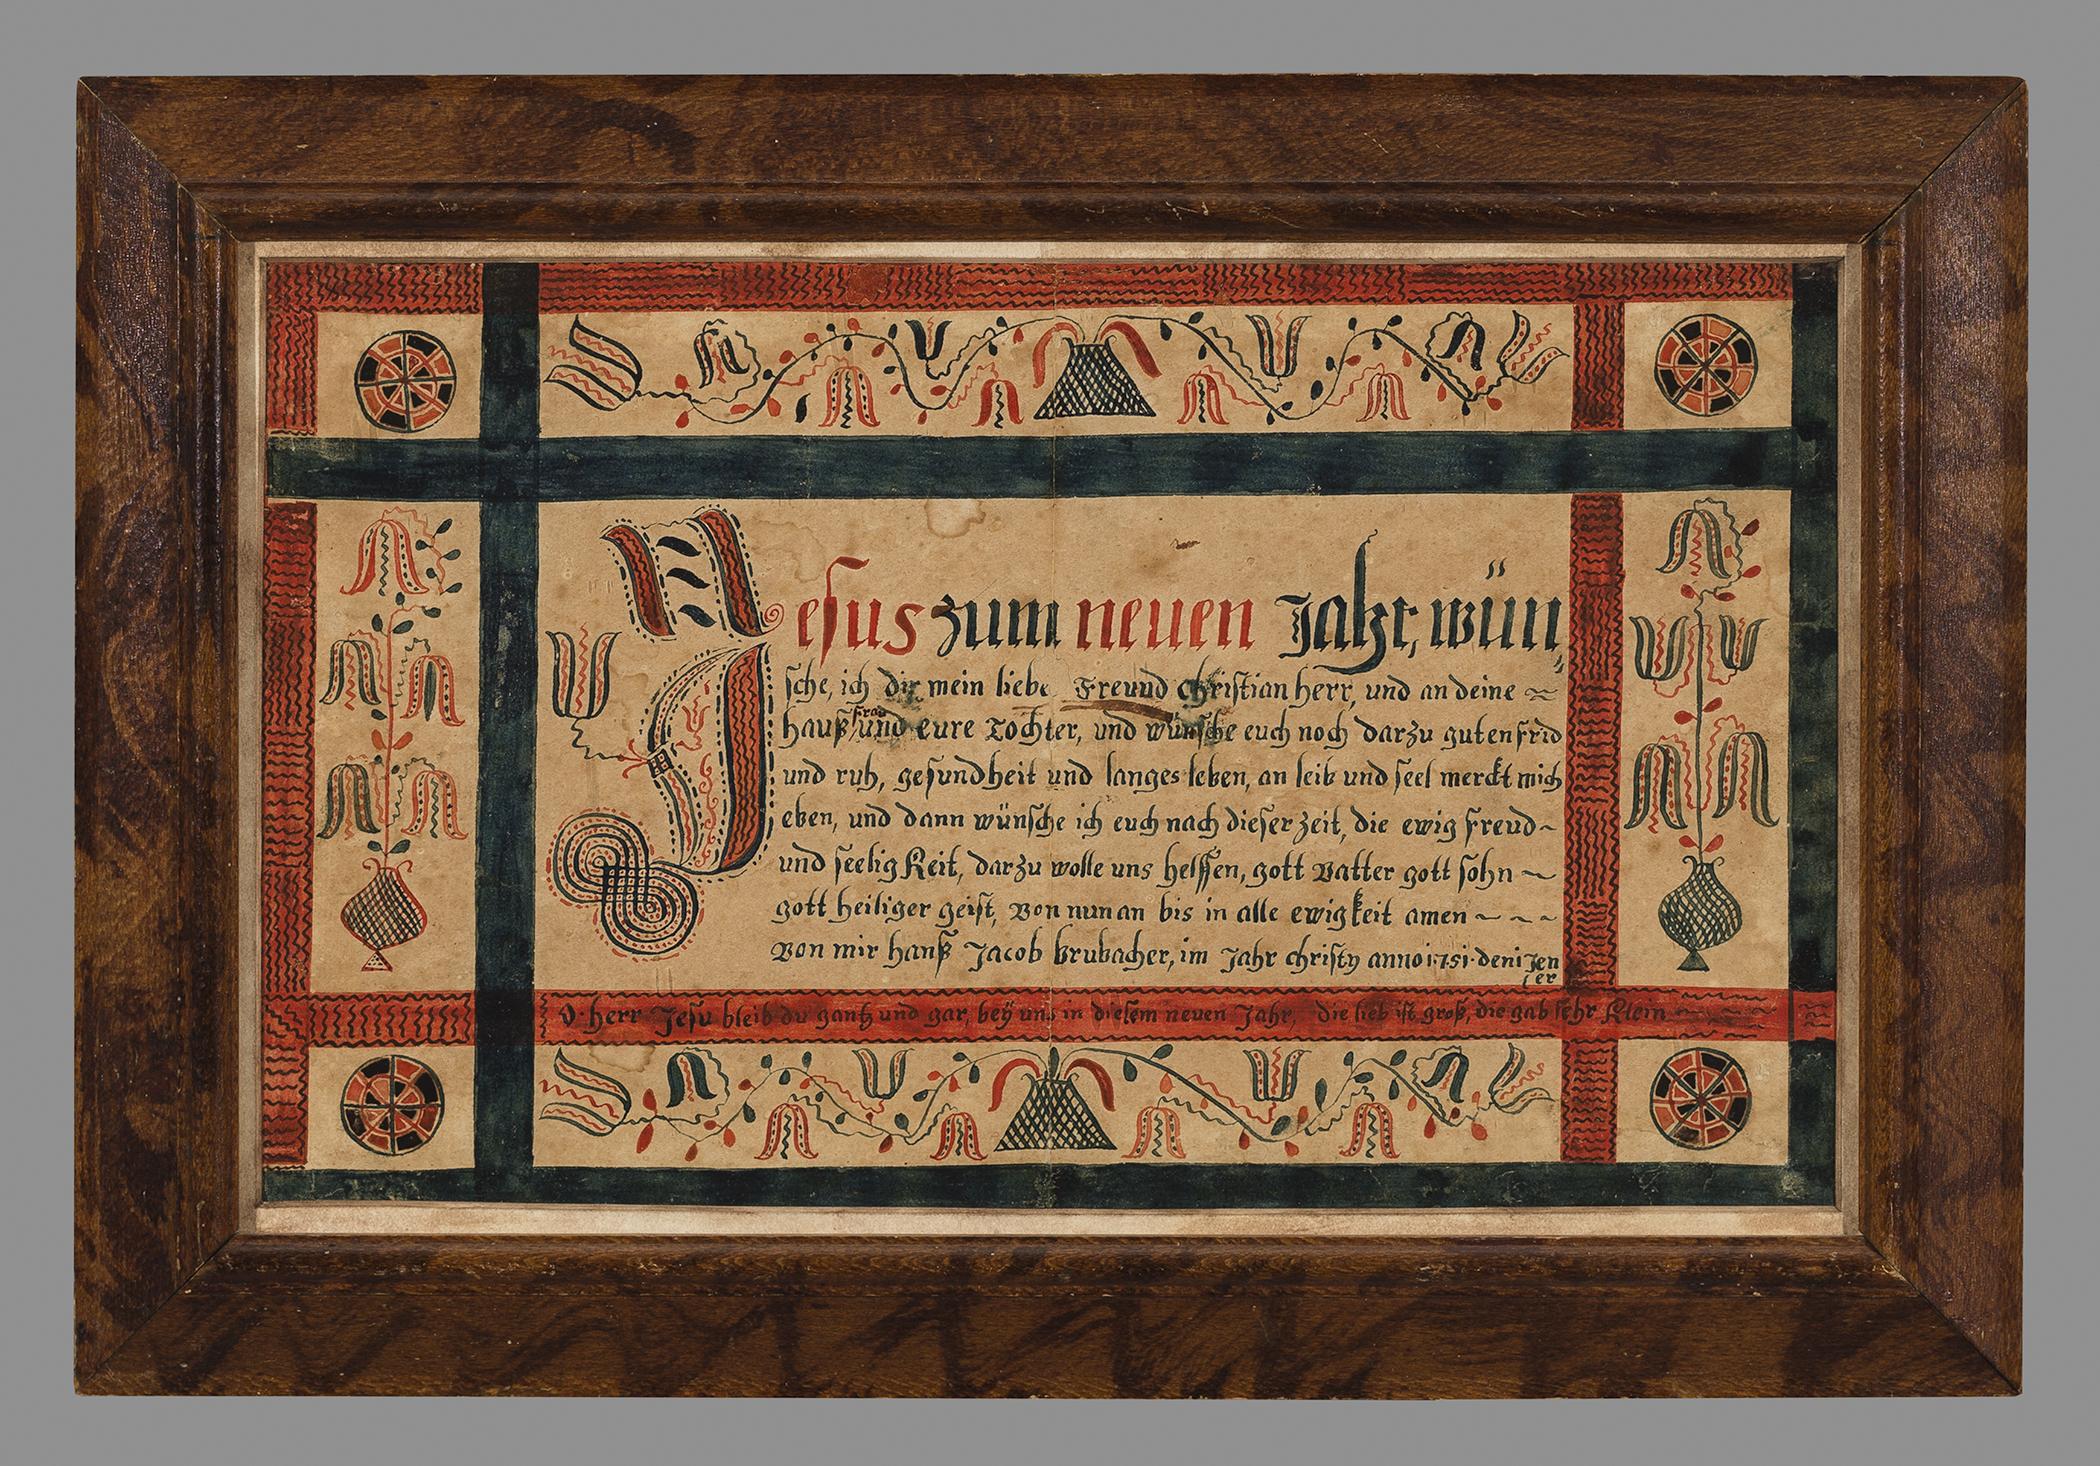 Jesus zum neuen Jahr, wün
sche, ich dir mein liebe Freund christian herr, und an deine ~
hauß frau und eure Tochter, und wünsche euch noch darzu guten frid
und ruh, gesundheit und langes leben, an leib und seel merckt mich
eben, und dann wünsche ich euch nach dieser zeit, die ewig freud ~
und seelig Keit, darzu wolle uns helffen, gott Vatter gott sohn ~
gott heiliger geist, von nun an bis in alle ewigkeit amen ~ ~ ~
Von mir hanß Jacob brubacher, im Jahr christy anno 1751. den 1 Jen
er
O. herr Jesu bleib du gantz und gar, beÿ uns in diesem neuen Jahr, die lieb ist groß, die gab sehr Klein